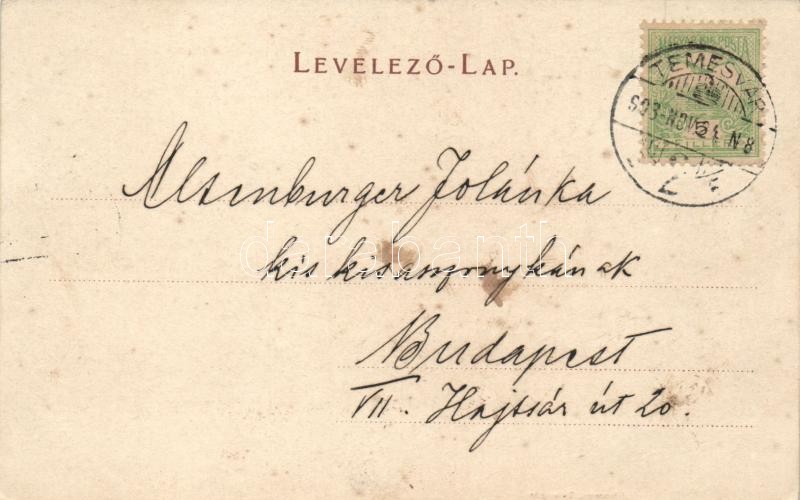 LEVELEZŐ-LAP.
MAGYAR KIR. POSTA
TEMESVÁR
903-NOV. 21. N 8
FILLÉR
Altenburger Jolánka
kis kisasszonykának
Budapest
VII. Hajtsár út 20.
darabanth